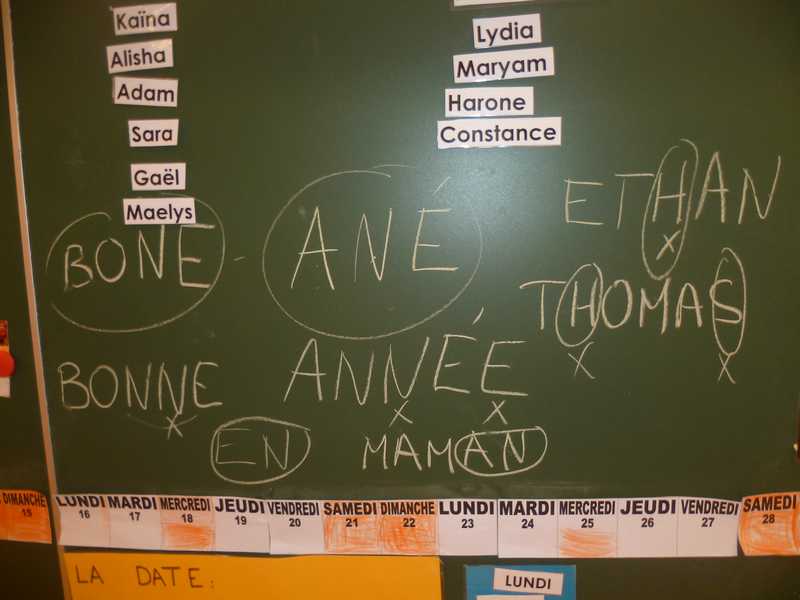 Kaïna
Alisha
Adam
Sara
Gaël
Maelys
Lydia
Maryam
Harone
Constance
BONE - ANÉ
ETHAN
X
THOMAS
X X
BONNE ANNÉE
X X X
EN MAMAN
DIMANCHE LUNDI MARDI MERCREDI JEUDI VENDREDI SAMEDI DIMANCHE LUNDI MARDI MERCREDI JEUDI VENDREDI SAMEDI
15 16 17 18 19 20 21 22 23 24 25 26 27 28
LA DATE:
LUNDI